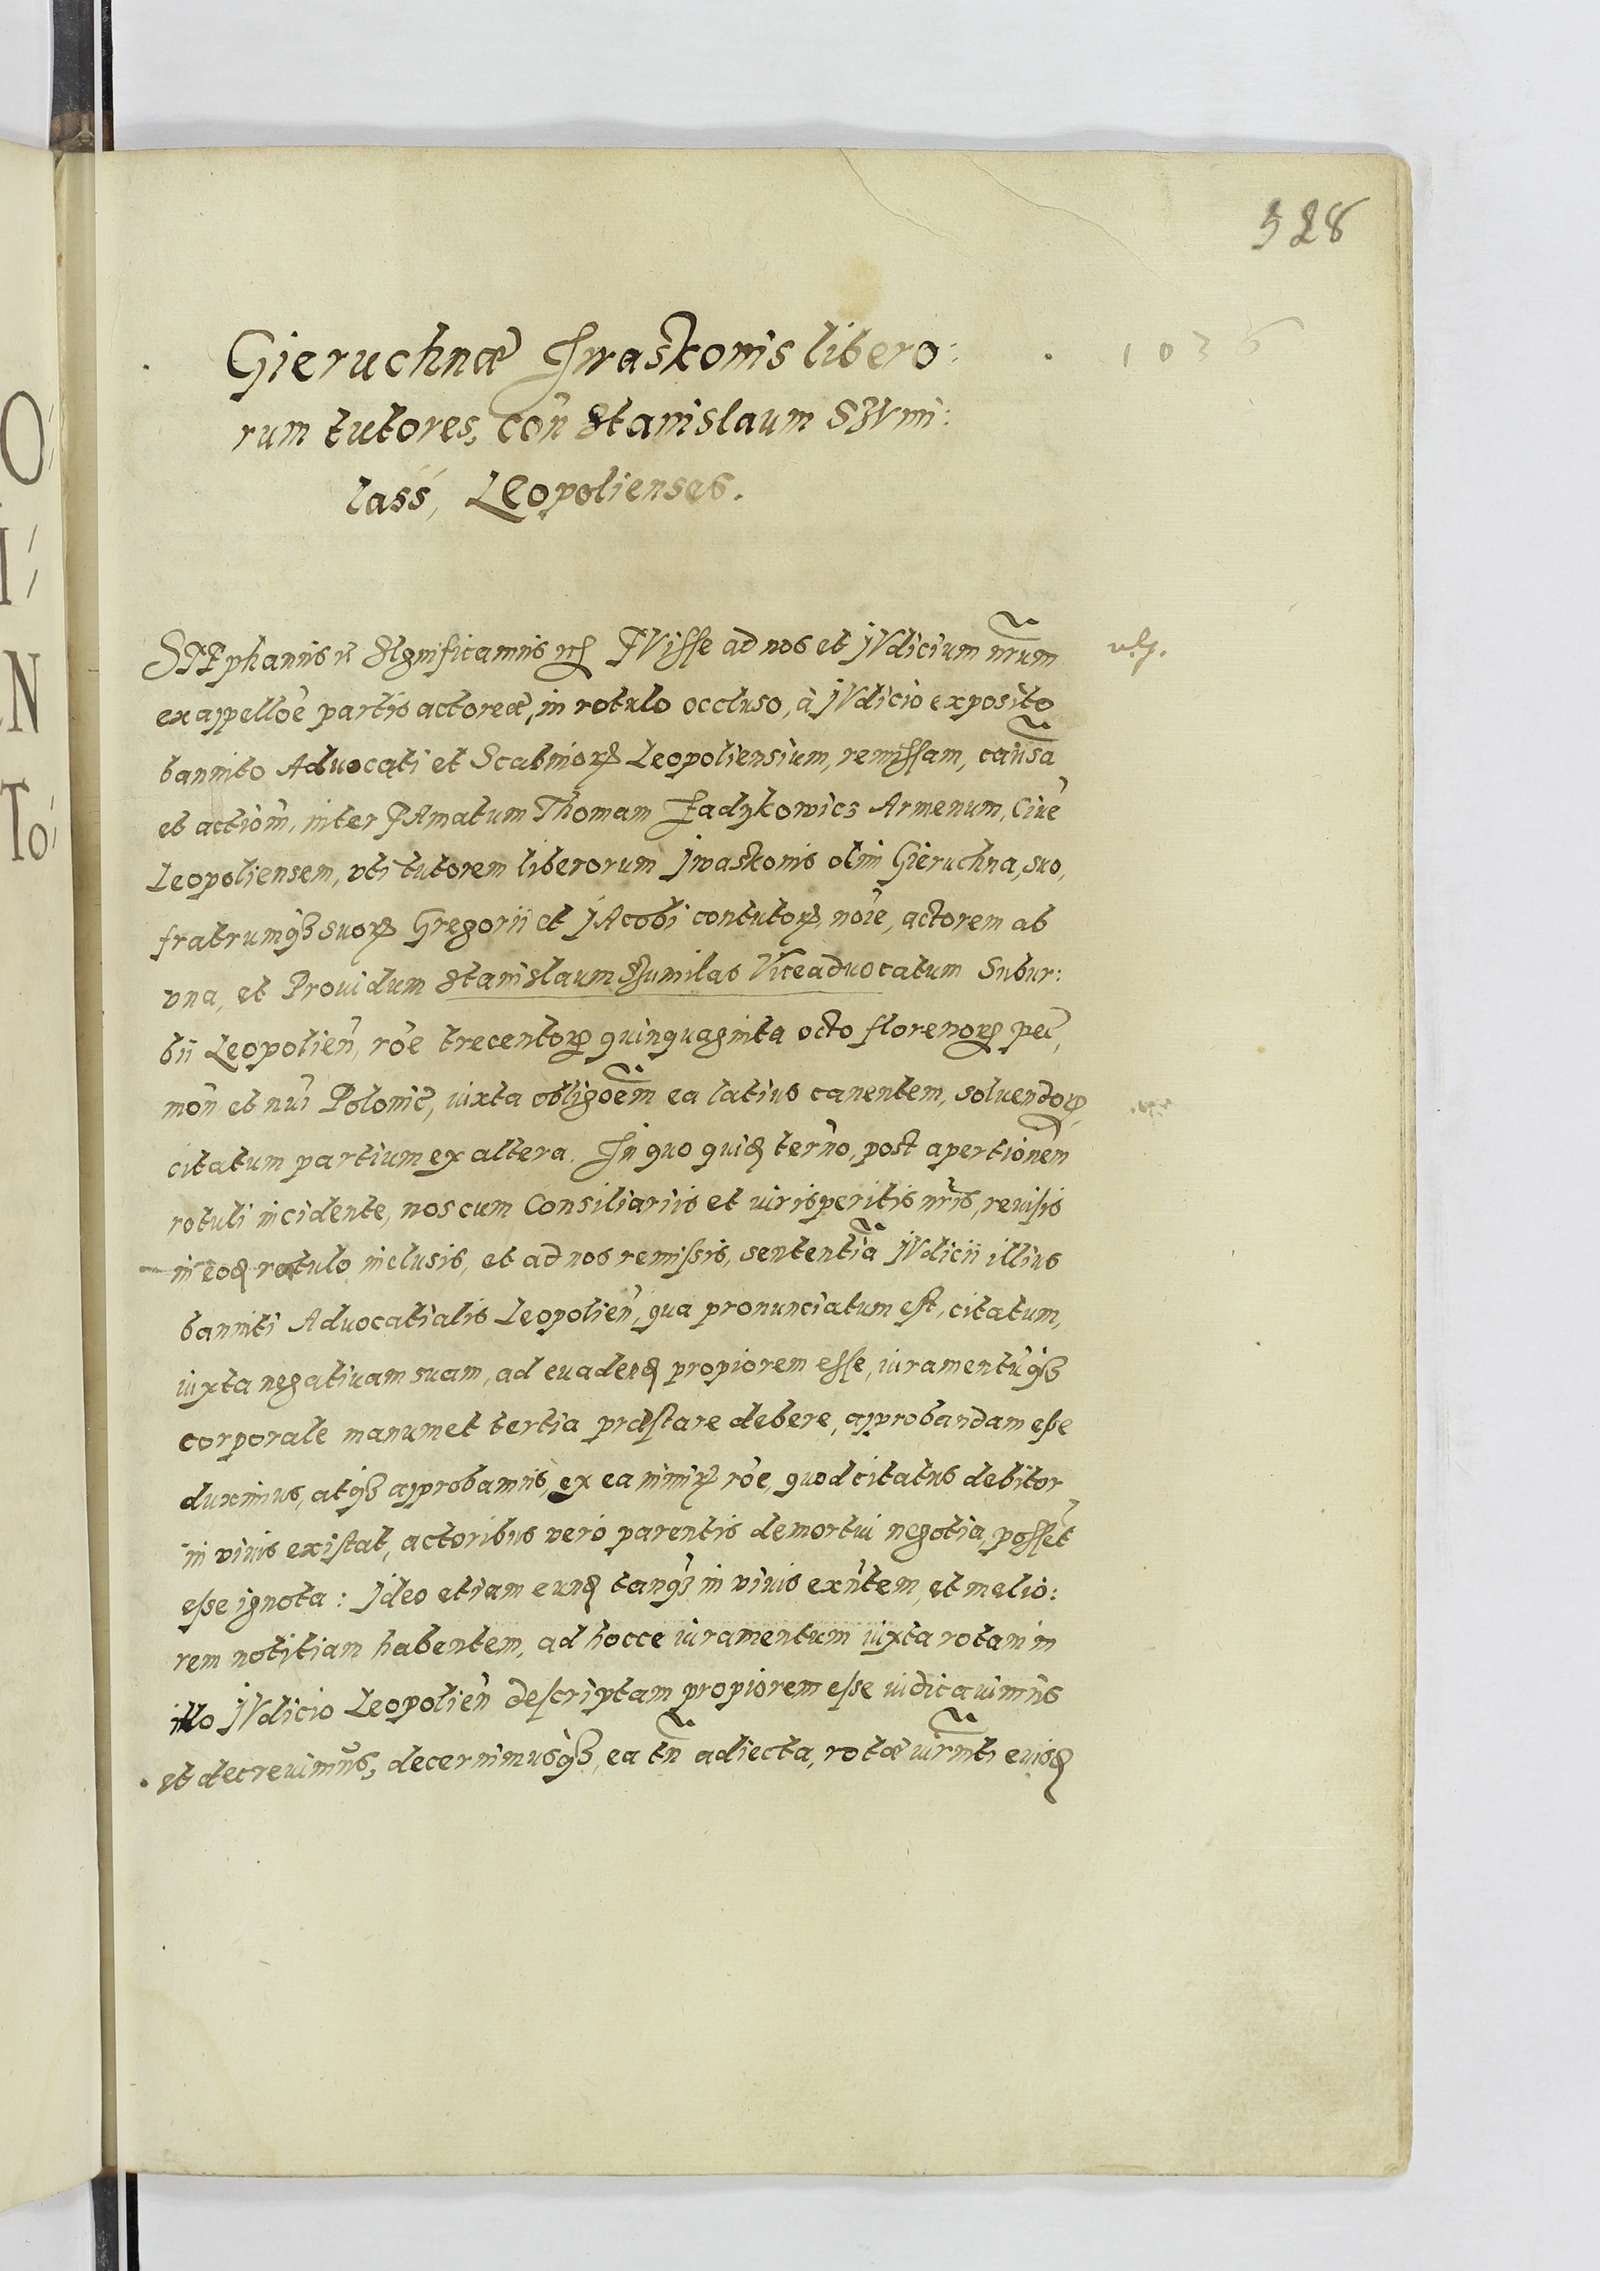 528
1036
Gieruchnæ Iwaskonis libero:
rum tutores, coñ Stanislaum SZVmi:
lass, LEopolienses.
STEphanus Significamus FVisse ad nos et IVdicium nrum
ex appellõe partis actoreæ, in rotulo occluso, à IVdicio exposito
bannito Aduocati et Scabinorꝝ Leopoliensium, remissam, causã
et actiõm, inter FAmatum Thomam Armenum, Ciuẽ
Leopoliensem, vti tutorem liberorum Iwaskonis olim Gieruchna, suo,
fratrumqꝫ suorꝝ Gregorii et IAcobi contutorꝝ, nõie, actorem ab
vna, et Prouidum Stanislaum Szumilas Viceaduocatum Subur:
bii Leopolień, rõe trecentorꝝ quinquaginta octo florenorꝝ pec̃,
moñ et nũi Polonic̃, iuxta obligõem ea latius canentem, soluendorꝝ,
citatum partium ex altera. In quo quiđ termõ, post apertionem
rotuli incidente, nos cum Consiliariis et iurisperitis nr̃is, reuisis
in eođ rotulo inclusis, et ad nos remissis, sententiã IVdicii illius
banniti Aduocatialis Leopolień, qua pronunciatum est, citatum,
iuxta negatiuam suam, ad euadenđ propiorem esse, iuramentũqꝫ
corporale manumet tertia præstare debere, approbandam esse
duximus, atqꝫ approbamus, ex ea rõe, quod citatus debitor
in viuis existat, actoribus vero parentis demortui negotia, possẽt
esse ignota: Ideo etiam eunđ tanqꝫ in viuis exñtem, et melio:
rem notitiam habentem, ad hocce iuramentum iuxta rotam in
illo IVdicio Leopolień descriptam propiorem esse iudicauimus
et decreuimus, decernimusqꝫ, ea tñ adiecta, rotæ iurm̃ti euisđ